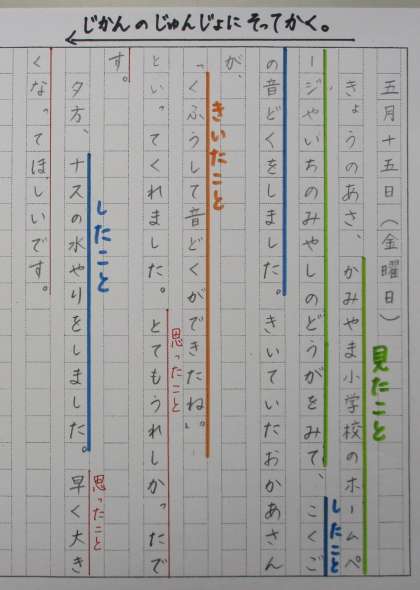 じかんのじゅんじょにそってかく。
五月十五日(金曜日)
きょうのあさ、かみやま小学校のホームペ
ージやいちのみやしのどうがをみて、こくご
の音どくをしました。きいていたおかあさん
が、
「くふうして音どくができたね。」
といってくれました。とてもうれしかったで
す。
夕方、ナスの水やりをしました。早く大き
くなってほしいです。
見たこと
したこと
きいたこと
思ったこと
したこと
思ったこと